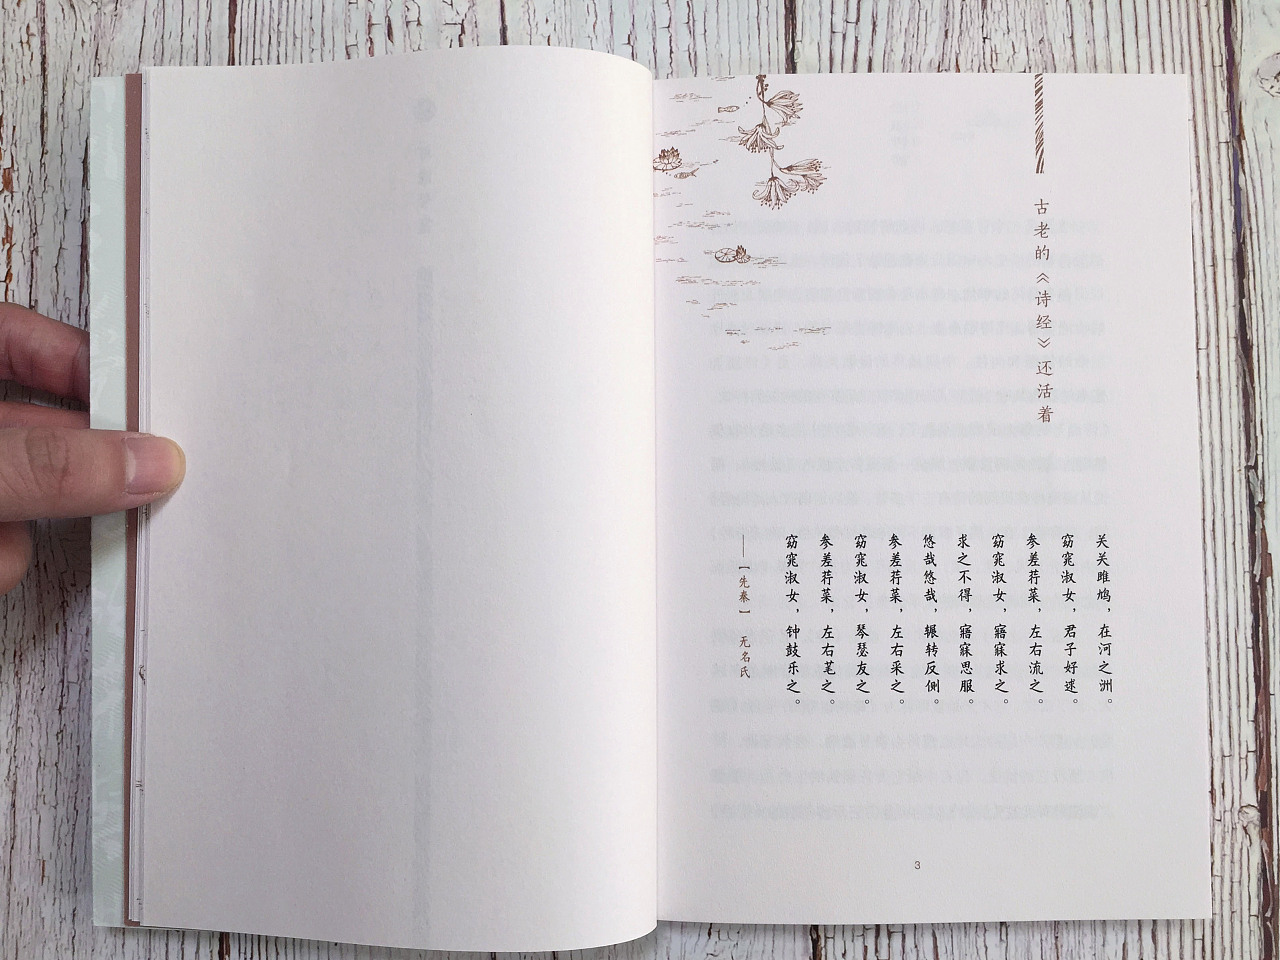 古老的《诗经》还活着
关关雎鸠，在河之洲。
窈窕淑女，君子好逑。
参差荇菜，左右流之。
窈窕淑女，寤寐求之。
求之不得，寤寐思服。
悠哉悠哉，辗转反侧。
参差荇菜，左右采之。
窈窕淑女，琴瑟友之。
参差荇菜，左右芼之。
窈窕淑女，钟鼓乐之。
——［先秦］ 无名氏
3